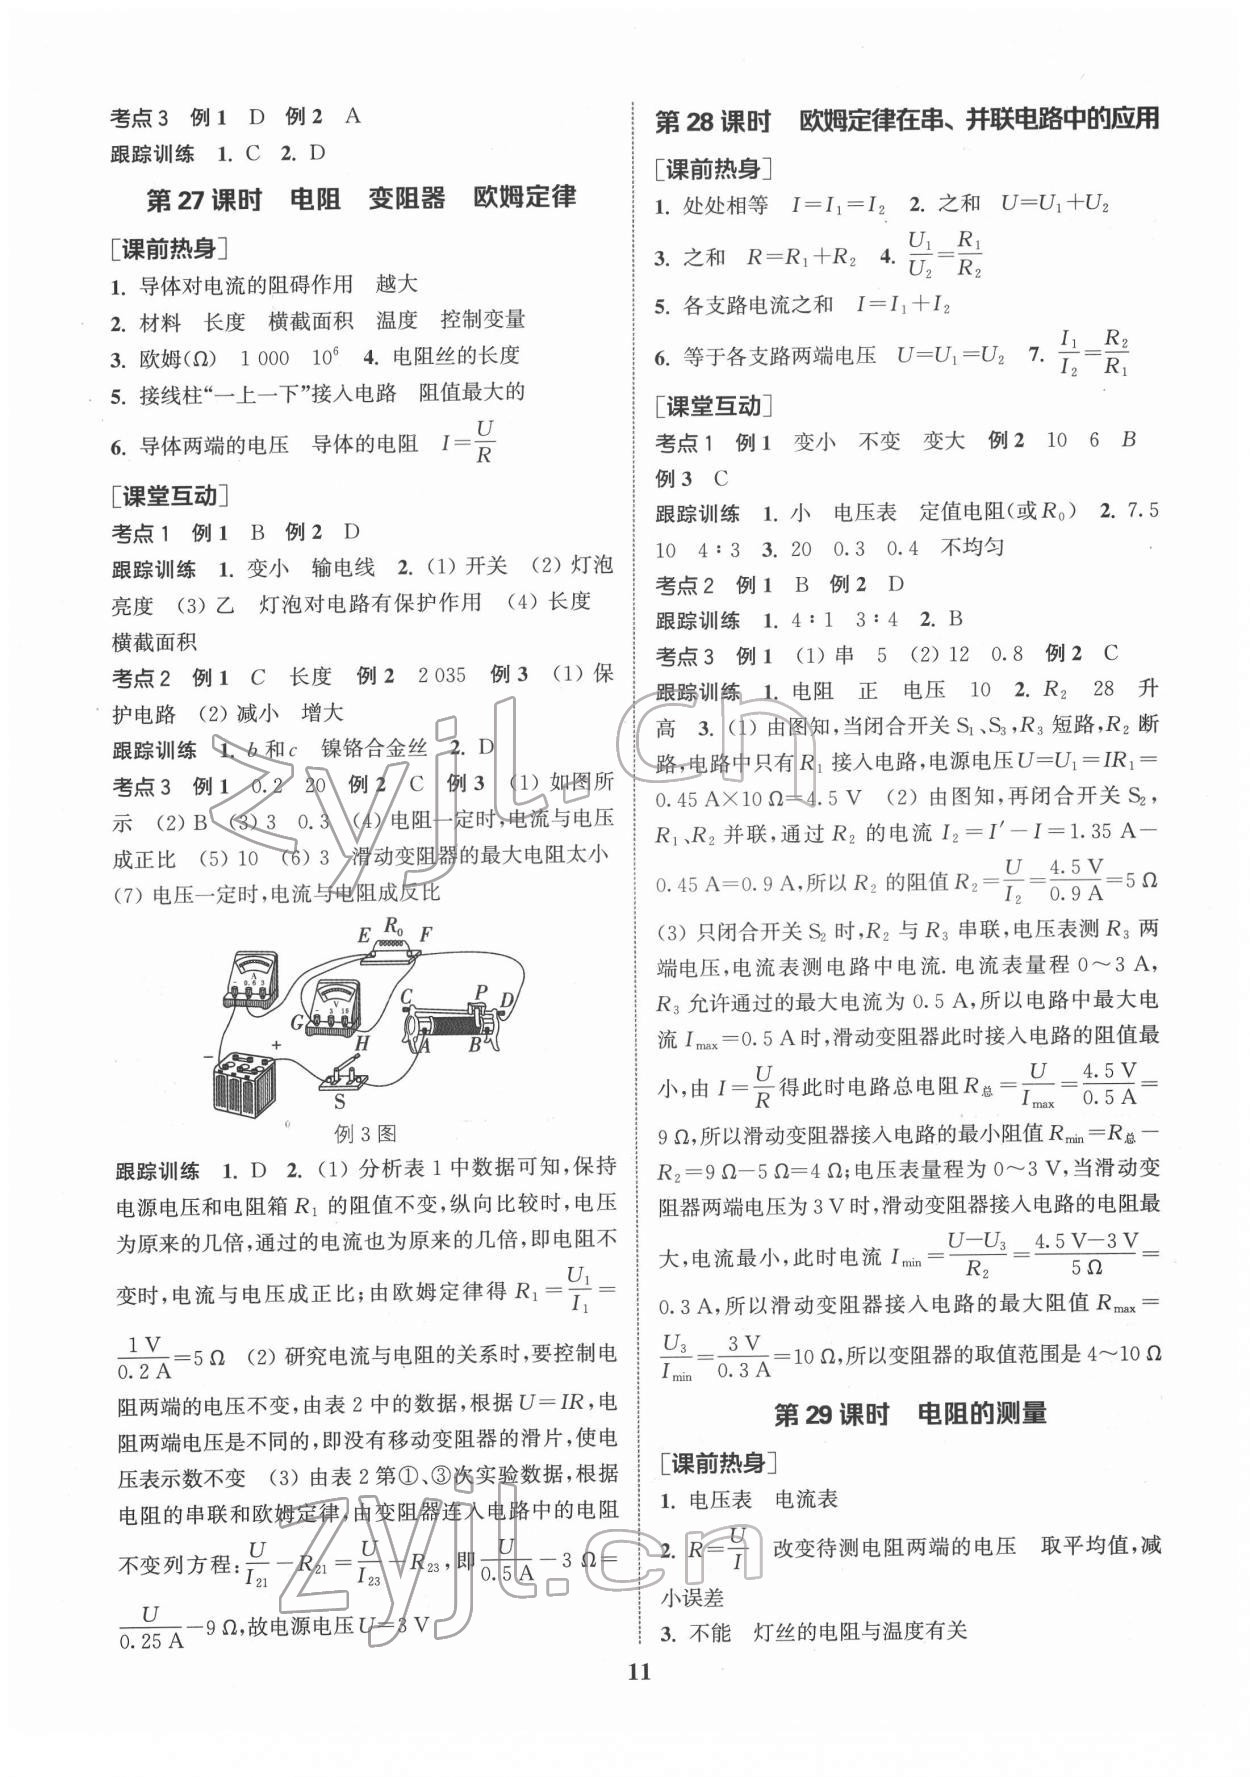 考点3 例1 D 例2 A
跟踪训练 1. C 2. D
第27课时 电阻 变阻器 欧姆定律
[课前热身]
1. 导体对电流的阻碍作用 越大
2. 材料 长度 横截面积 温度 控制变量
3. 欧姆(Ω) 1 000 10⁶ 4. 电阻丝的长度
5. 接线柱“一上一下”接入电路 阻值最大的
6. 导体两端的电压 导体的电阻 I=U/R
[课堂互动]
考点1 例1 B 例2 D
跟踪训练 1. 变小 输电线 2. (1)开关 (2)灯泡
亮度 (3)乙 灯泡对电路有保护作用 (4)长度
横截面积
考点2 例1 C 长度 例2 2 035 例3 (1)保
护电路 (2)减小 增大
跟踪训练 1. b和c 镍铬合金丝 2. D
考点3 例1 0.2 20 例2 C 例3 (1)如图所
示 (2)B (3)3 0.3 (4)电阻一定时,电流与电压
成正比 (5)10 (6)3 滑动变阻器的最大电阻太小
(7)电压一定时,电流与电阻成反比
E R₀ F
A
- 0.6 3
V
- 3 15
C P D
G H A B
- +
S
例3图
跟踪训练 1. D 2. (1)分析表1中数据可知,保持
电源电压和电阻箱R₁的阻值不变,纵向比较时,电压
为原来的几倍,通过的电流也为原来的几倍,即电阻不
变时,电流与电压成正比;由欧姆定律得R₁=U₁/I₁=
1 V/0.2 A=5 Ω (2)研究电流与电阻的关系时,要控制电
阻两端的电压不变,由表2中的数据,根据U=IR,电
阻两端电压是不同的,即没有移动变阻器的滑片,使电
压表示数不变 (3)由表2第①、③次实验数据,根据
电阻的串联和欧姆定律,由变阻器连入电路中的电阻
不变列方程:U/I₂₁-R₂₁=U/I₂₃-R₂₃,即U/0.5 A-3 Ω=
U/0.25 A-9 Ω,故电源电压U=3 V
第28课时 欧姆定律在串、并联电路中的应用
[课前热身]
1. 处处相等 I=I₁=I₂ 2. 之和 U=U₁+U₂
3. 之和 R=R₁+R₂ 4. U₁/U₂=R₁/R₂
5. 各支路电流之和 I=I₁+I₂
6. 等于各支路两端电压 U=U₁=U₂ 7. I₁/I₂=R₂/R₁
[课堂互动]
考点1 例1 变小 不变 变大 例2 10 6 B
例3 C
跟踪训练 1. 小 电压表 定值电阻(或R₀) 2. 7.5
10 4∶3 3. 20 0.3 0.4 不均匀
考点2 例1 B 例2 D
跟踪训练 1. 4∶1 3∶4 2. B
考点3 例1 (1)串 5 (2)12 0.8 例2 C
跟踪训练 1. 电阻 正 电压 10 2. R₂ 28 升
高 3. (1)由图知,当闭合开关S₁、S₃,R₃短路,R₂断
路,电路中只有R₁接入电路,电源电压U=U₁=IR₁=
0.45 A×10 Ω=4.5 V (2)由图知,再闭合开关S₂,
R₁、R₂并联,通过R₂的电流I₂=I′-I=1.35 A-
0.45 A=0.9 A,所以R₂的阻值R₂=U/I₂=4.5 V/0.9 A=5 Ω
(3)只闭合开关S₂时,R₂与R₃串联,电压表测R₃两
端电压,电流表测电路中电流.电流表量程0~3 A,
R₃允许通过的最大电流为0.5 A,所以电路中最大电
流Imax=0.5 A时,滑动变阻器此时接入电路的阻值最
小,由I=U/R得此时电路总电阻R总=U/Imax=4.5 V/0.5 A=
9 Ω,所以滑动变阻器接入电路的最小阻值Rmin=R总-
R₂=9 Ω-5 Ω=4 Ω;电压表量程为0~3 V,当滑动变
阻器两端电压为3 V时,滑动变阻器接入电路的电阻最
大,电流最小,此时电流Imin=U-U₃/R₂=4.5 V-3 V/5 Ω=
0.3 A,所以滑动变阻器接入电路的最大阻值Rmax=
U₃/Imin=3 V/0.3 A=10 Ω,所以变阻器的取值范围是4~10 Ω
第29课时 电阻的测量
[课前热身]
1. 电压表 电流表
2. R=U/I 改变待测电阻两端的电压 取平均值,减
小误差
3. 不能 灯丝的电阻与温度有关
11
zyjl.cn
zyjl.cn